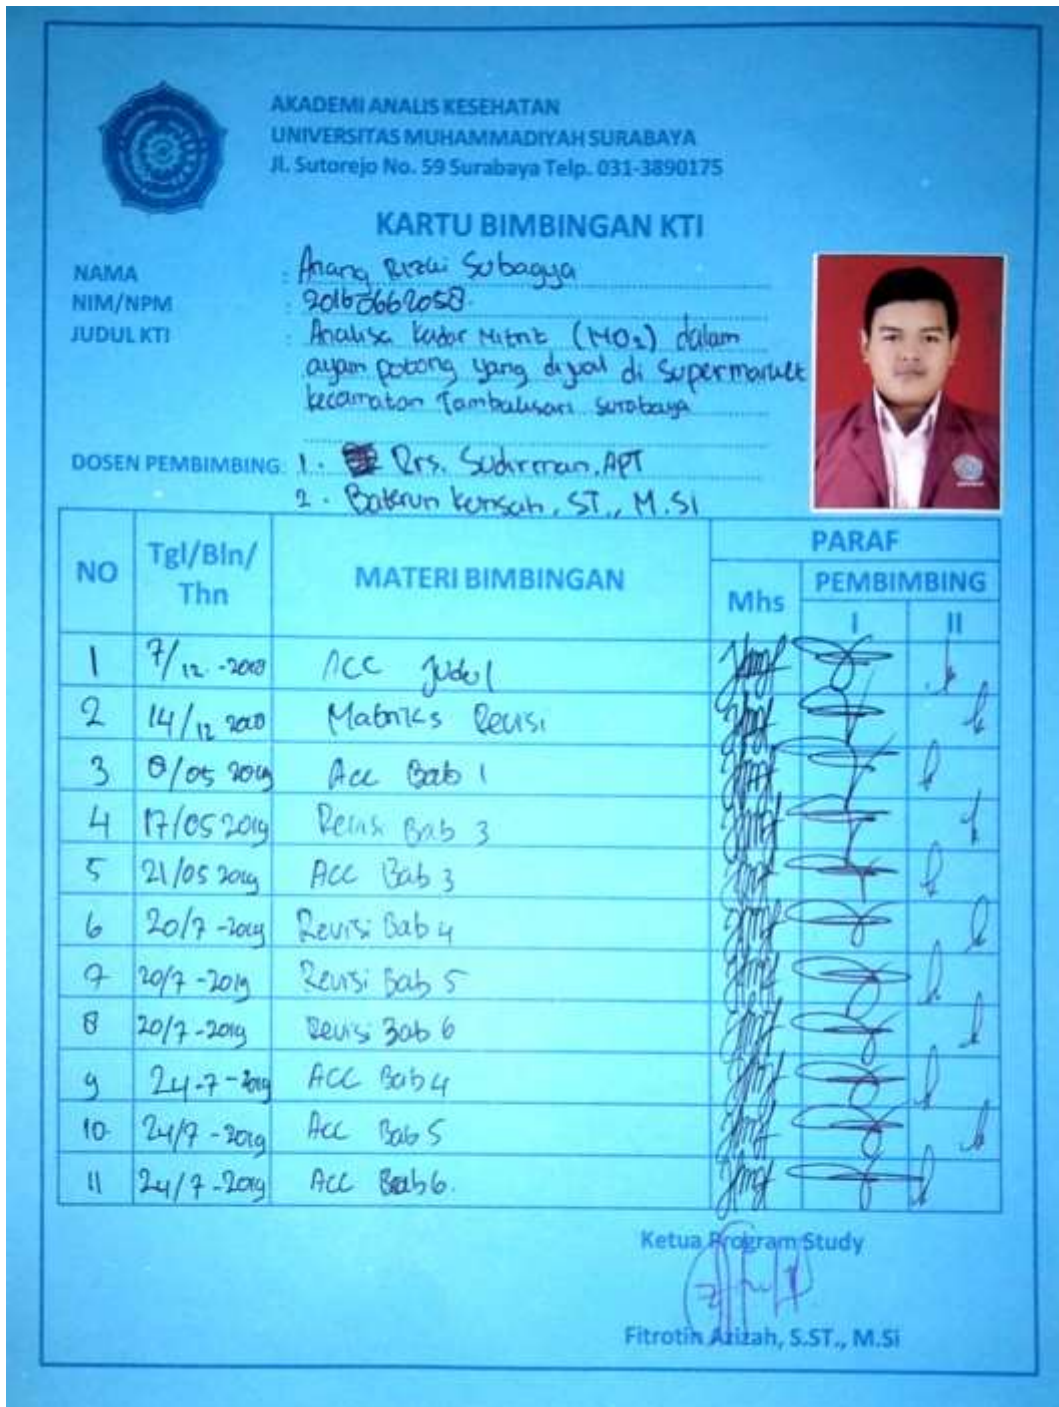 AKADEMI ANALIS KESEHATAN
UNIVERSITAS MUHAMMADIYAH SURABAYA
Jl. Sutorejo No. 59 Surabaya Telp. 031-3890175
KARTU BIMBINGAN KTI
NAMA : Anang Rizki Subagya
NIM/NPM : 20160662058
JUDUL KTI : Analisa kadar Nitrit (NO2) dalam
ayam potong yang dijual di Supermarket
kecamatan Tambaksari Surabaya
DOSEN PEMBIMBING: 1. Drs. Sudirman, APT
2. Baterun Kunsah, ST., M.Si
NO Tgl/Bln/Thn MATERI BIMBINGAN PARAF
Mhs PEMBIMBING
I II
1 7/12-2018 ACC Judul
2 14/12 2018 Matriks Revisi
3 8/05 2019 Acc Bab 1
4 17/05 2019 Revisi Bab 3
5 21/05 2019 ACC Bab 3
6 20/7-2019 Revisi Bab 4
7 20/7-2019 Revisi Bab 5
8 20/7-2019 Revisi Bab 6
9 24-7-2019 ACC Bab 4
10 24/7-2019 Acc Bab 5
11 24/7-2019 ACC Bab 6.
Ketua Program Study
Fitrotin Azizah, S.ST., M.Si